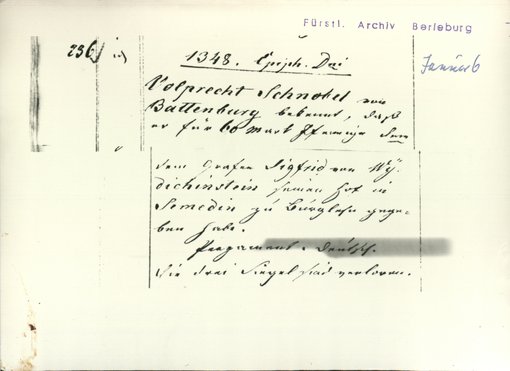 Fürstl. Archiv Berleburg
236
1348. Epiph. Dni
Januar 6
Volprecht Schnobel von
Battenburg bekennt, daß
er für 60 mark Pfennige dem
dem Grafen Sigfrid von Wy-
dichinstein seinen Hof in
Semedin zu Burglehn gege-
ben habe.
Pergament. Deutsch.
Die drei Siegel sind verloren.